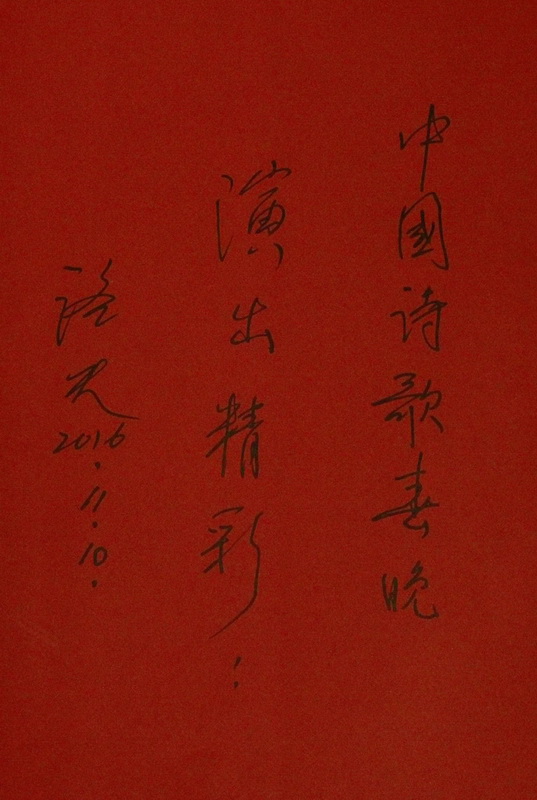 中國詩歌春晚
演出精彩！
2016.11.10.